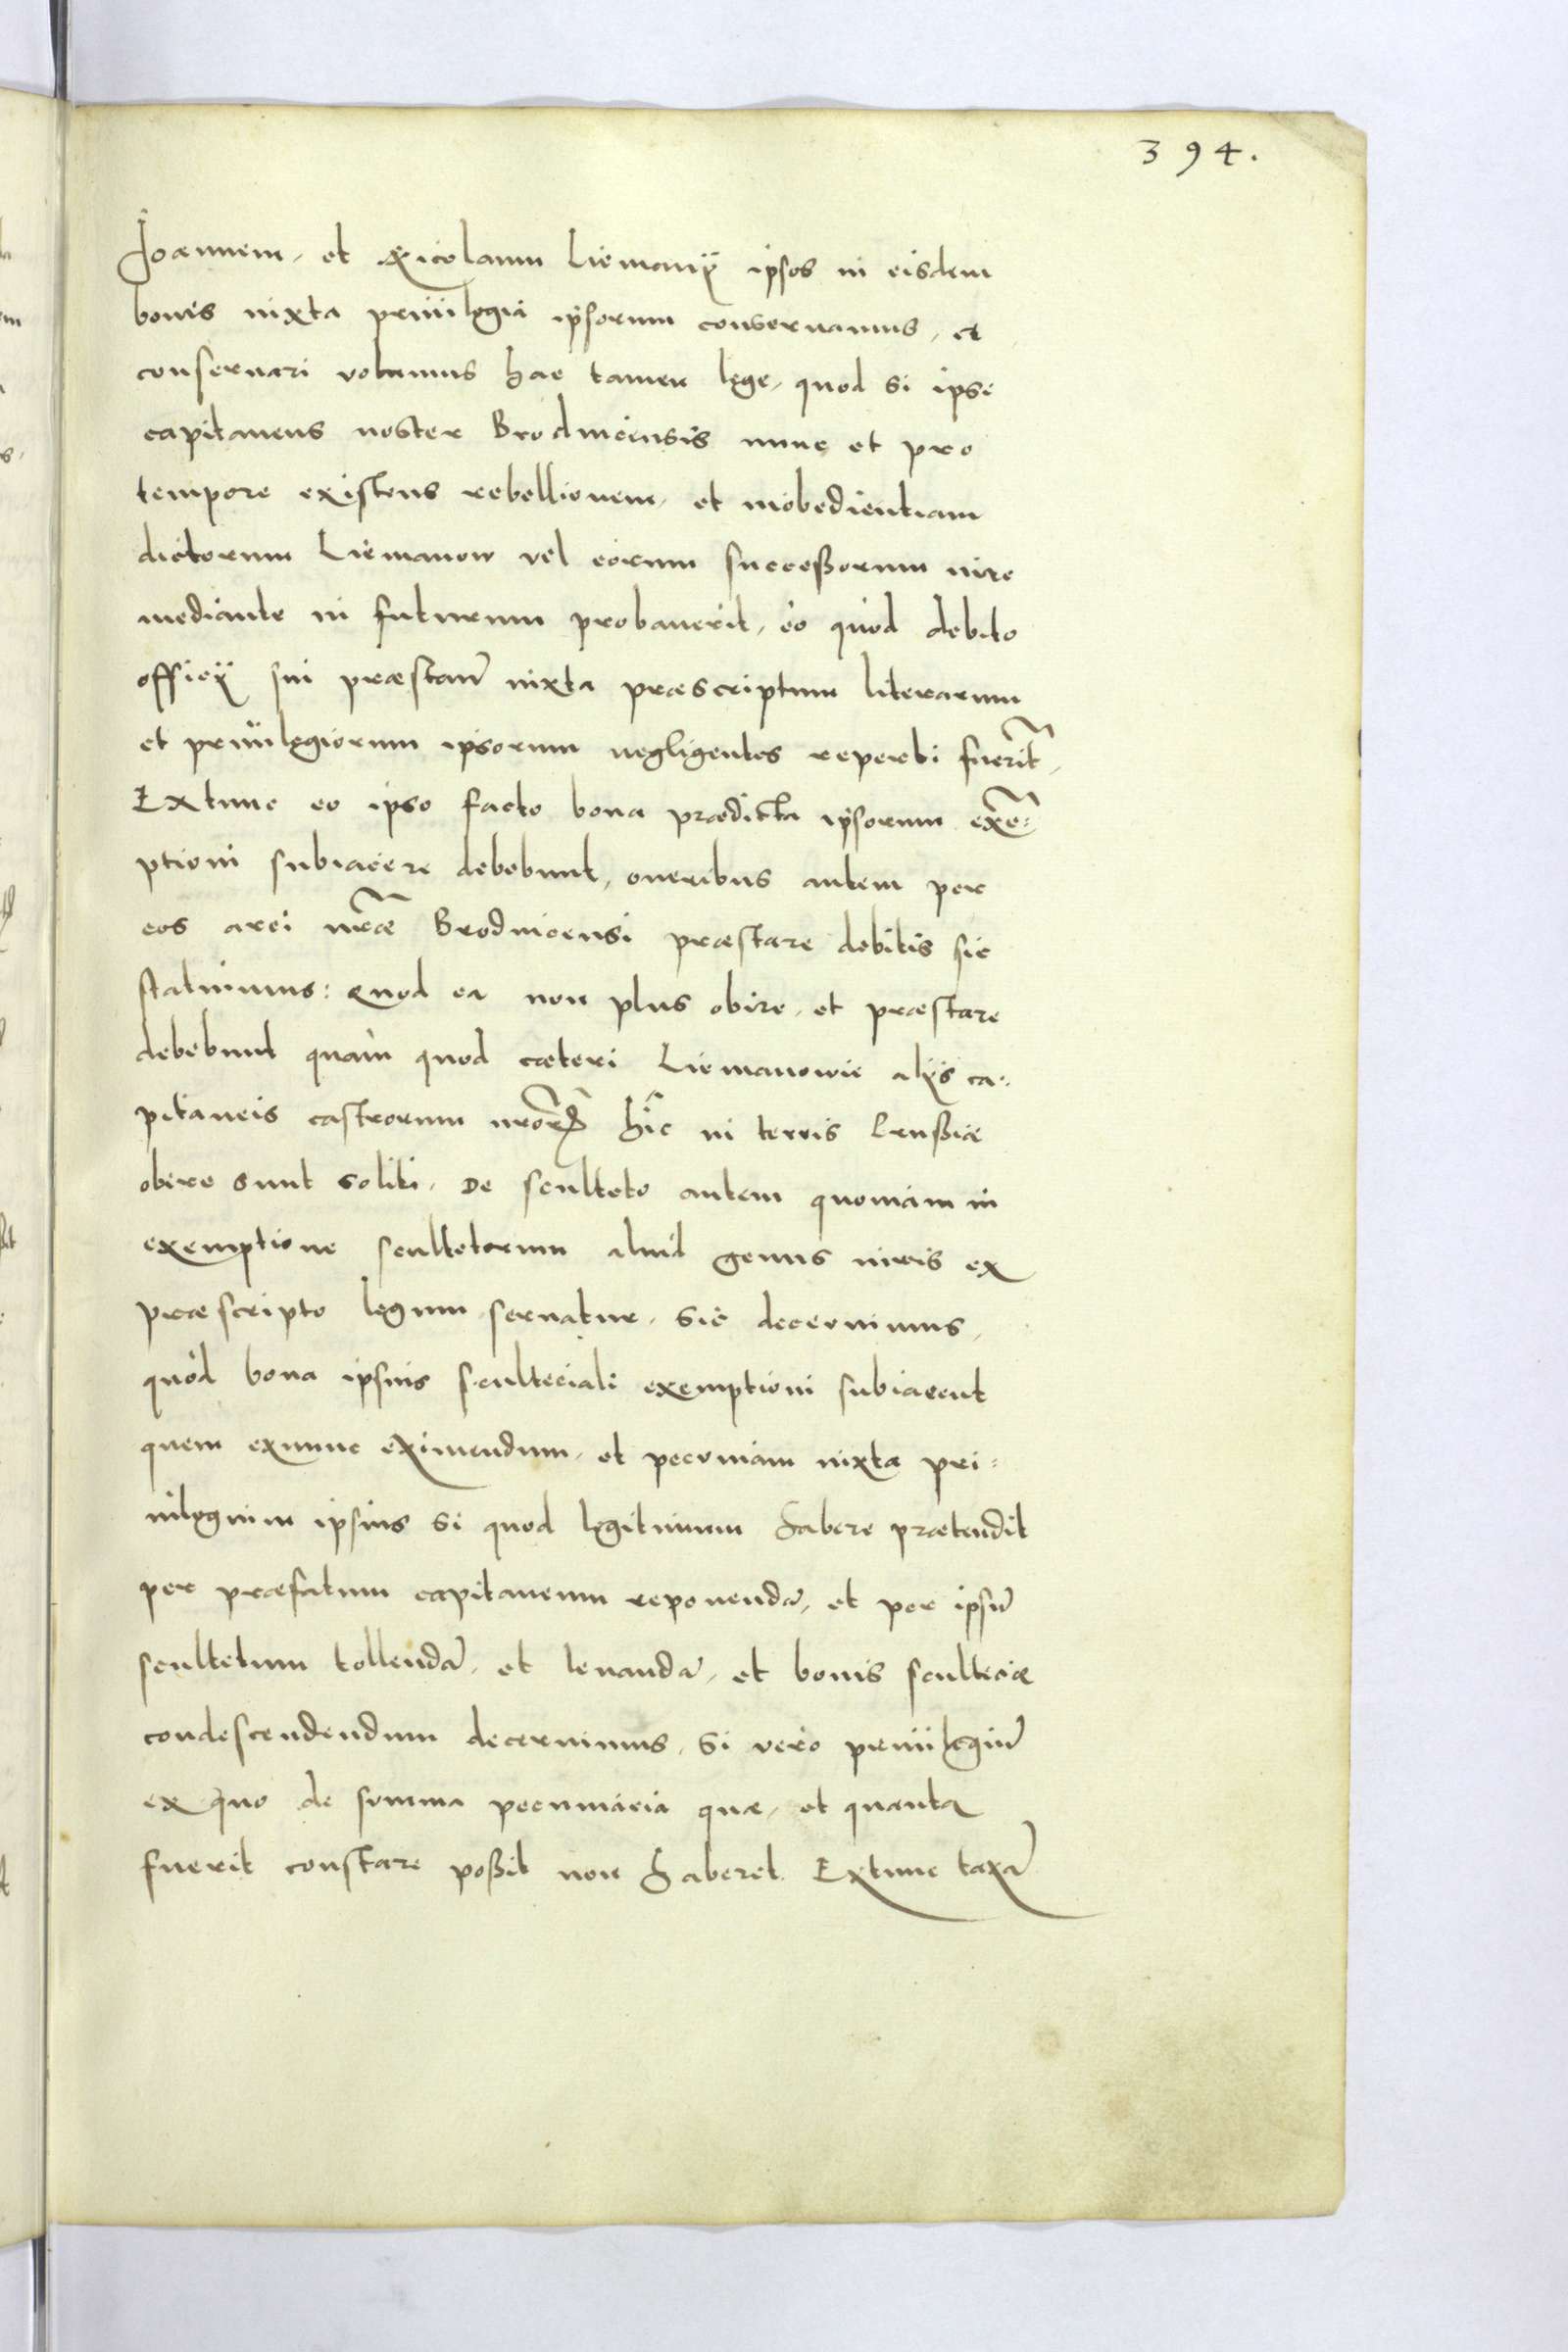 394.
Joannem, et Nicolaum Liemanÿ ipsos in eisdem
bonis iuxta priuilegia ipsorum conseruamus, et
conseruari volumus hac tamen lege, quod si ipse
capitaneus noster Brodnicensis nunc et pro
tempore existens rebellionem, et inobedientiam
dictorum Liemanow vel eorum successorum iure
mediante in futurum probauerit, eo quòd debito
officÿ sui præstan̄ iuxta præscriptum literarum
et priuilegiorum ipsorum negligentes reperti fuerit̃,
Extunc eo ipso facto bona prædicta ipsorum exẽ=
ptioni subiacere debebunt, oneribus autem per
eos arci nr̃æ Brodnicensi præstare debitis sic
statuimus: Quod ea non plus obire, et præstare
debebunt quàm quod cæteri Liemanowie alÿs ca=
pitaneis castrorum nr̃oꝝ hîc in terris Prussiæ
obire sunt soliti. De sculteto autem quoniam in
exemptione scultetorum aliud genus iuris ex
præscripto legum seruatur, sic decernimus,
quòd bona ipsius scultecialì exemptioni subiacent
quem exnunc eximendum, et pecuniam iuxta pri=
uilegium ipsius si quod legitimum habere prætendit
per præfatum capitaneum reponendā, et per ipsū
scultetum tollendā, et leuandā, et bonis scultecia
condescendendum decernimus, si verò priuilegiū
ex quo de summa pecuniaria quæ, et quanta
fuerit constare possit non haberet. Extunc taxā